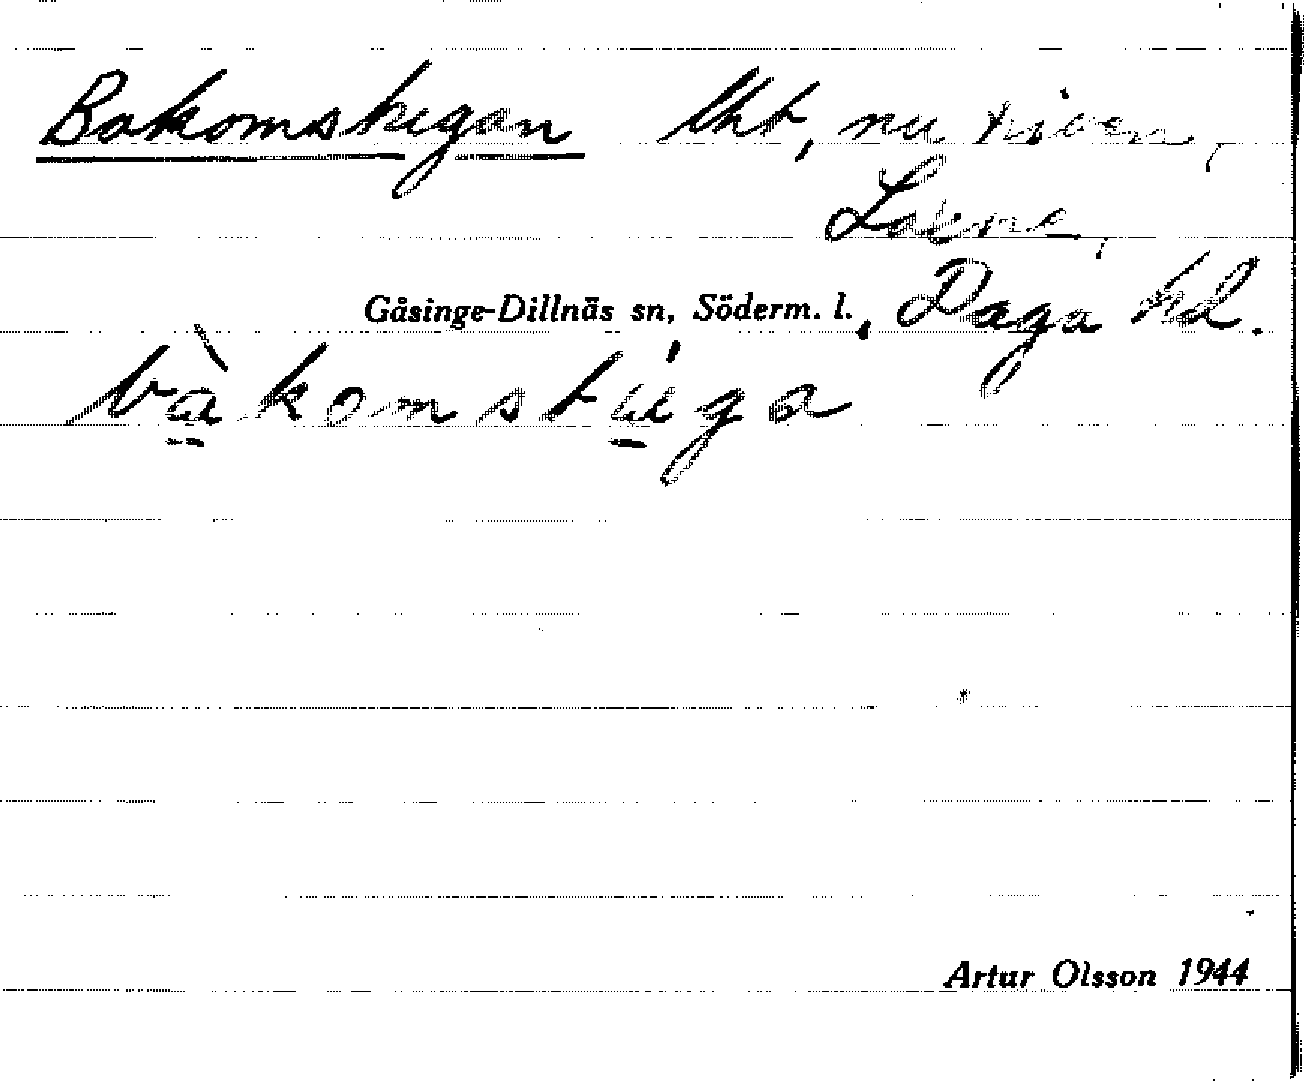 Bakomstugan lht, nu riven,
Lovne,
Gåsinge-Dillnäs sn, Söderm. l., Daga hd.
bàkomstúga
Artur Olsson 1944